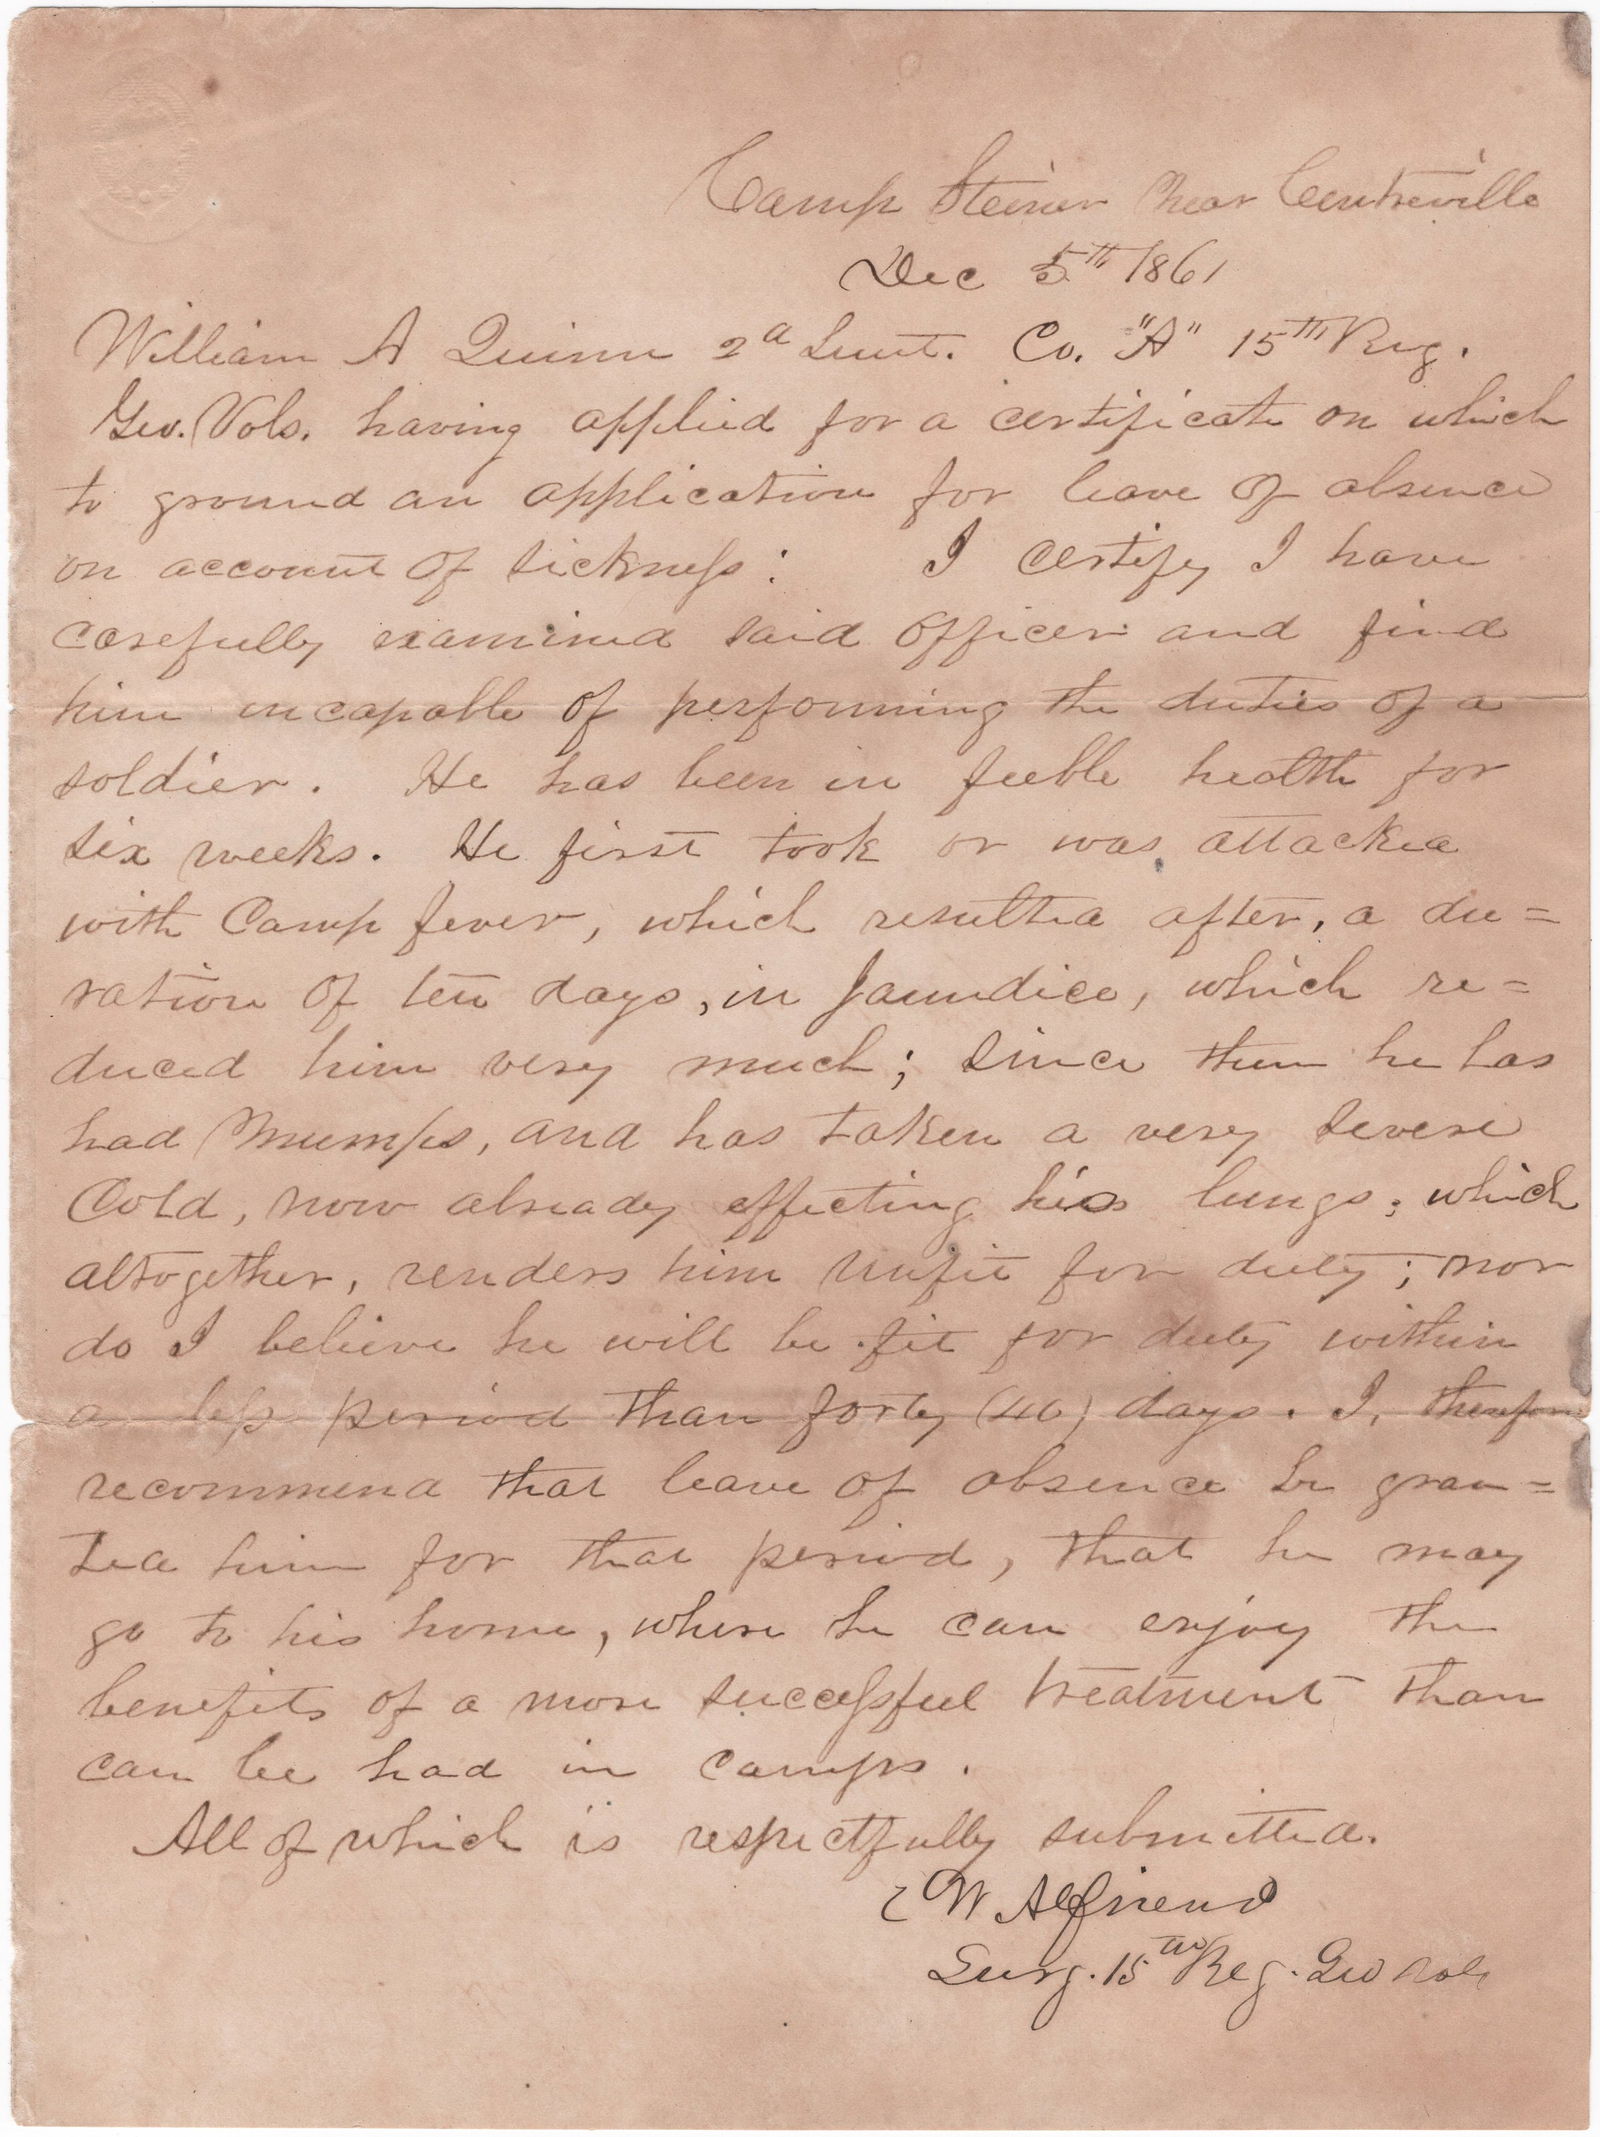 Camp Steiner Near Centreville
Dec 5th 1861
William A Quinn 2d Lieut. Co. "A" 15TH Reg.
Geo. Vols. having applied for a certificate on which
to ground an application for leave of absence
on account of sickness: I certify I have
carefully examined said officer and find
him incapable of performing the duties of a
soldier. He has been in feeble health for
six weeks. He first took or was attacked
with Camp fever, which resulted after, a du=
ration of ten days, in Jaundice, which re=
duced him very much; since then he has
had Mumps, and has taken a very severe
Cold, now already effecting his lungs; which
altogether, renders him unfit for duty; nor
do I believe he will be fit for duty within
a less period than forty (40) days. I, therefore
recommend that leave of absence be gran=
ted him for that period, that he may
go to his home, where he can enjoy the
benefits of a more successful treatment than
can be had in camps.
All of which is respectfully submitted.
E W Alfriend
Surg. 15th Reg. Geo Vols